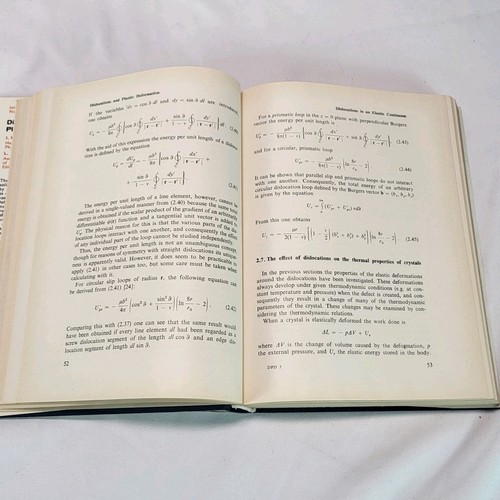 Dislocations and Plastic Deformation
If the variables dx = cos ϑ dl and dy = sin ϑ dl are introduced
one obtains
(2.40)
With the aid of this expression the energy per unit length of a disloca-
tion is defined by the equation
(2.41)
The energy per unit length of a line element, however, cannot be
derived in a single-valued manner from (2.40) because the same total
energy is obtained if the scalar product of the gradient of an arbitrarily
differentiable function and a tangential unit vector is added to
The physical reason for this is that the various parts of the dis-
location loops interact with one another, and consequently the effect
of any individual part of the loop cannot be studied independently.
Thus, the energy per unit length is not an unambiguous concept
though for reasons of symmetry with straight dislocations its unique-
ness is apparently valid. However, it does seem to be practicable to
apply (2.41) in other cases too, but some care must be taken when
calculating with it.
For circular slip loops of radius r, the following equation can
be derived from (2.41) [24]:
(2.42)
Comparing this with (2.37) one can see that the same result would
have been obtained if every line element dl had been regarded as a
screw dislocation segment of the length dl cos ϑ and an edge dis-
location segment of length dl sin ϑ.
52
Dislocations in an Elastic Continuum
For a prismatic loop in the z = 0 plane with perpendicular Burgers
vector the energy per unit length is
(2.43)
and for a circular, prismatic loop
(2.44)
It can be shown that parallel slip and prismatic loops do not interact
with one another. Consequently, the total energy of an arbitrary
circular dislocation loop defined by the Burgers vector b = (bx, by, bz)
is given by the equation
From this one obtains
(2.45)
2.7. The effect of dislocations on the thermal properties of crystals
In the previous sections the properties of the elastic deformations
around the dislocations have been investigated. These deformations
always develop under given thermodynamic conditions (e.g. at con-
stant temperature and pressure) when the defect is created, and con-
sequently they result in a change of many of the thermodynamic
parameters of the crystal. These changes may be examined by con-
sidering the thermodynamic relations.
When a crystal is elastically deformed the work done is
ΔL = − pΔV + Ue
where ΔV is the change of volume caused by the deformation, p
the external pressure, and Ue the elastic energy stored in the body.
53